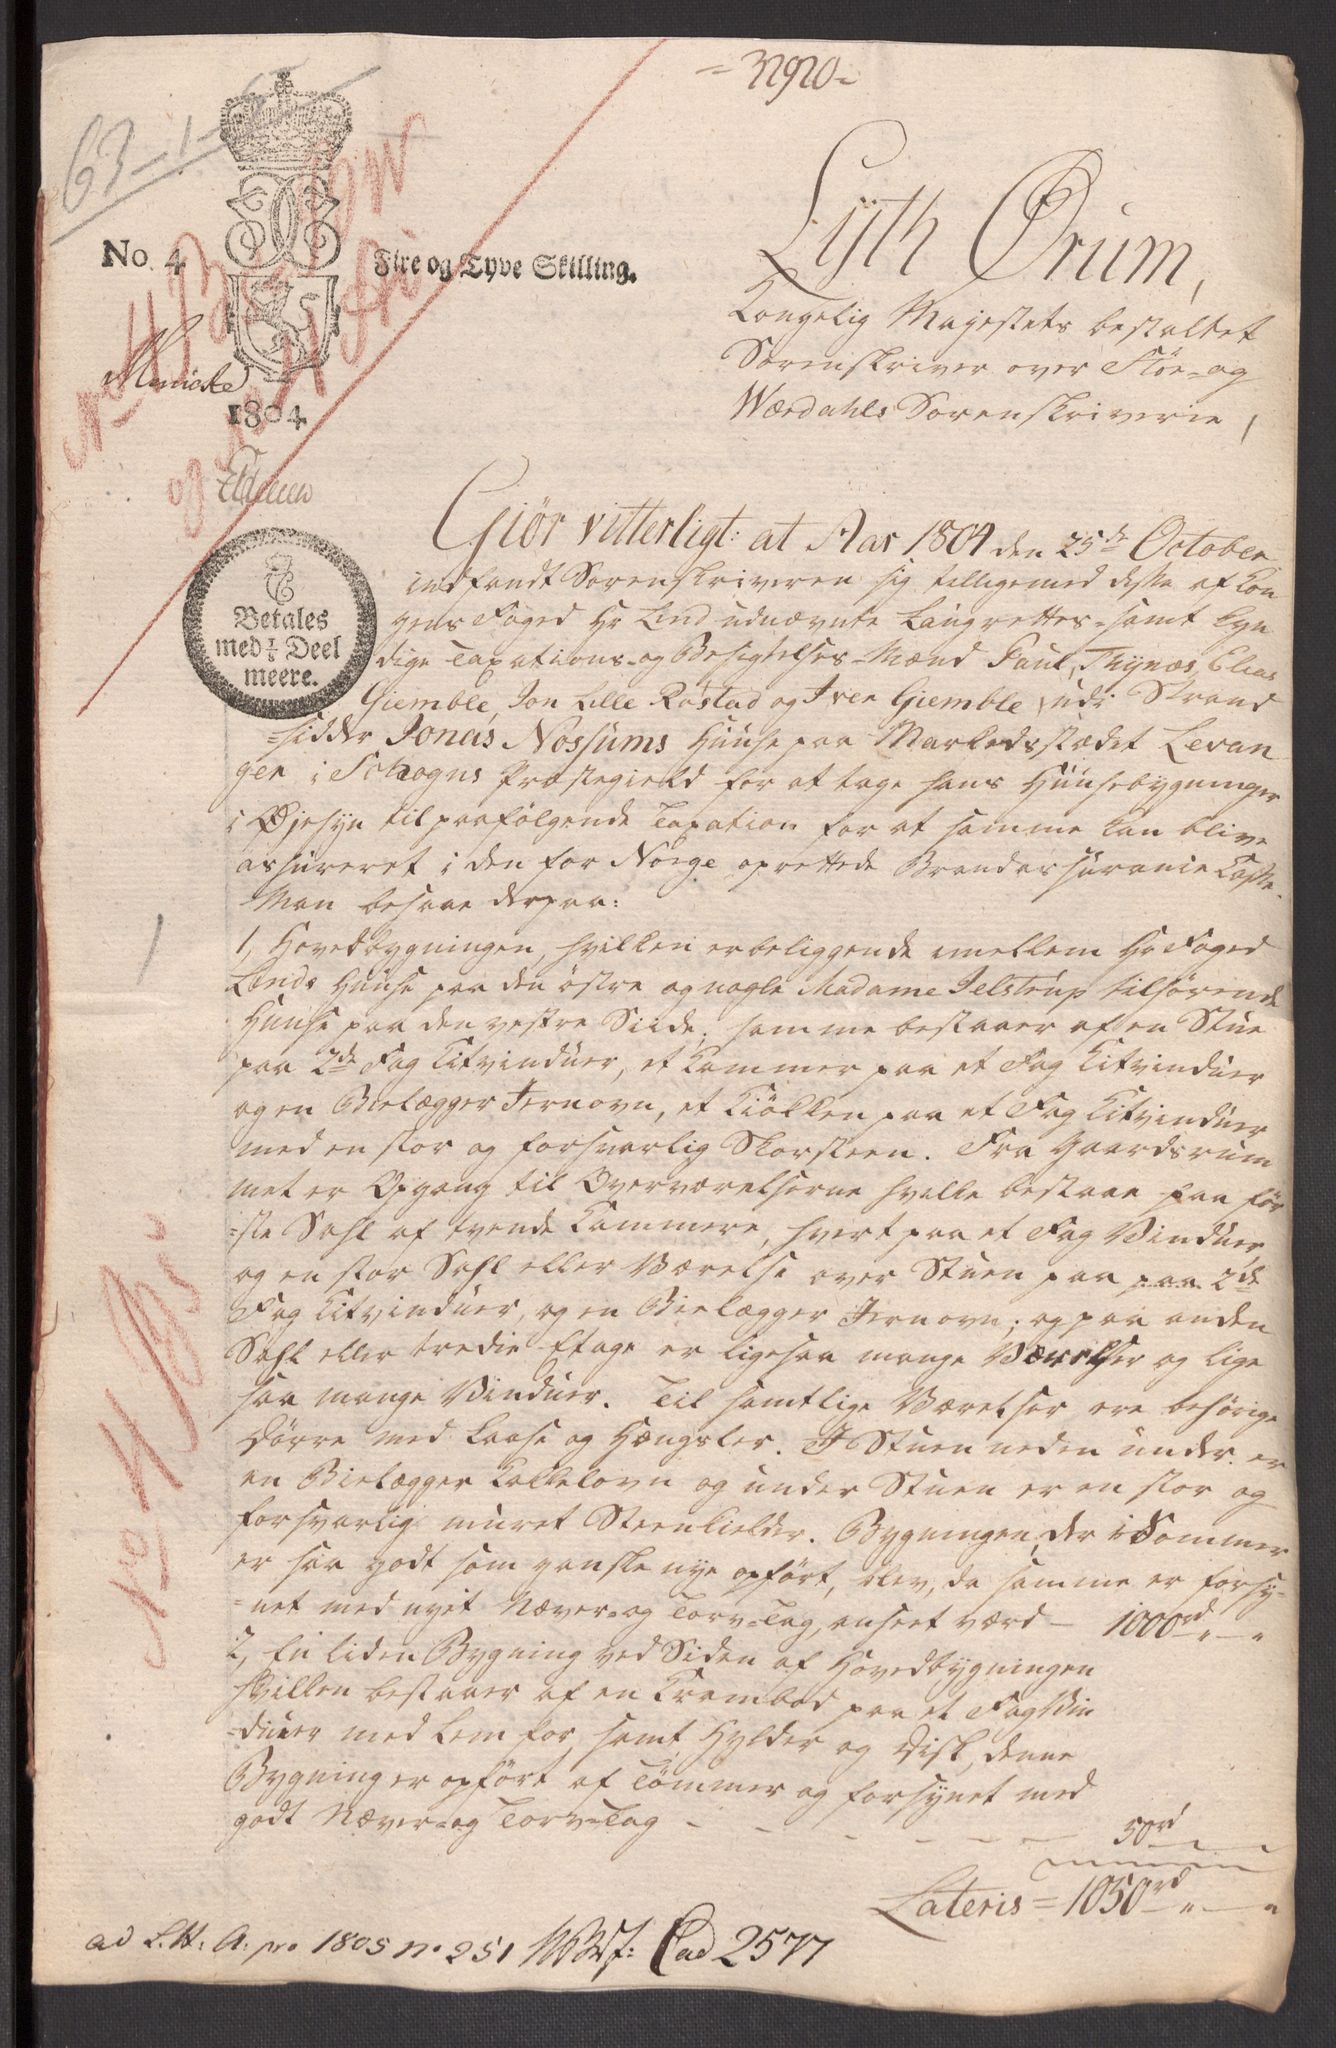 32920
63-1-
No. 4
Fire og Tyve Skilling.
1804
Betales
med ½ Deel
meere.
Lyth Ørum,
Kongelig Majestets bestaltet
Sorenskriver over Stør- og
Wærdahls Sorenskriverie
Giör vitterligt: at Aar 1804 den 25de October
indfandt Sorenskriveren sig tilligemed deste af Kon
gens Foged Hr Lind udnævnte Laugrettes- samt kyn
dige Taxations- og Besigtelses-Mænd Paul Thynæs, Elias
Giemble, Jon Lille Rostad og Iver Giemble udi Strand
-sidder Jonas Nossums Huuse paa Markedsstædet Levan
ger i Schogns Præstegield for at tage hans Huusebygninger
i Øjesyn til paafölgende Taxation for at samme kan blive
assureret i den for Norge oprettede Brandassurance Casse.
Man besaae derpaa:
1, Hovedbygningen, hvilken er beliggende imellem Hr Foged
Linds Huuse paa den östre og nogle Madame Jelstrup tilhörende
Huuse paa den vestre Siide, samme bestaaer af en Stue
paa 2de Fag Kitvinduer, et Kammer paa et Fag Kitvinduer
og en Bielægger Jernovn, et Kiökken paa et Fag Kitvinduer
med en stor og forsvarlig Skorsteen. Fra Gaardsrum
met er Opgang til Overværelserne hvilke bestaae paa för
-ste Sahl af tvende Kammere, hvert paa et Fag Vinduer,
og en stor Sahl eller Værelse over Stuen paa paa 2de
Fag Kitvinduer, og en Bielægger Jernovn; og paa anden
Sahl eller tredie Etage er ligesaa mange Værelser og lige
saa mange Vinduer. Til samtlige Værelser ere behörige
Dörre med Laase og Hængsler. I Stuen neden under er
en Bielægger Kakkelovn og under Stuen er en stor og
forsvarlig muret Steenkielder. Bygningen, der i Sommer
er saa godt som ganske nye opfört, blev, da samme er forsy-
-net med nyet Næver- og Torv-Tag, anseet værd - 1000rd „ - „
2, En liden Bygning ved Siden af Hovedbygningen
hvilken bestaaer af en Krambod paa et Fag Vin
-duer med Lem for, samt Hylder og Disk, denne
Bygning er opfört af Tömmer og forsynet med
godt Næver- og Torv-Tag - - - - - - 50rd
Lateris = 1050rd „ - „
ad L.tt: A: pro 1805 No 251 Cad 2577